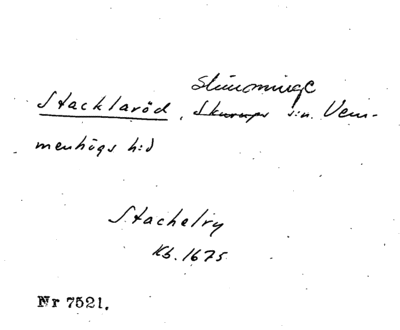 Slimminge
Stacklaröd, Skurups s:n. Vem-
menhögs h:d
Stachelry
Kb. 1675
Nr 7521.